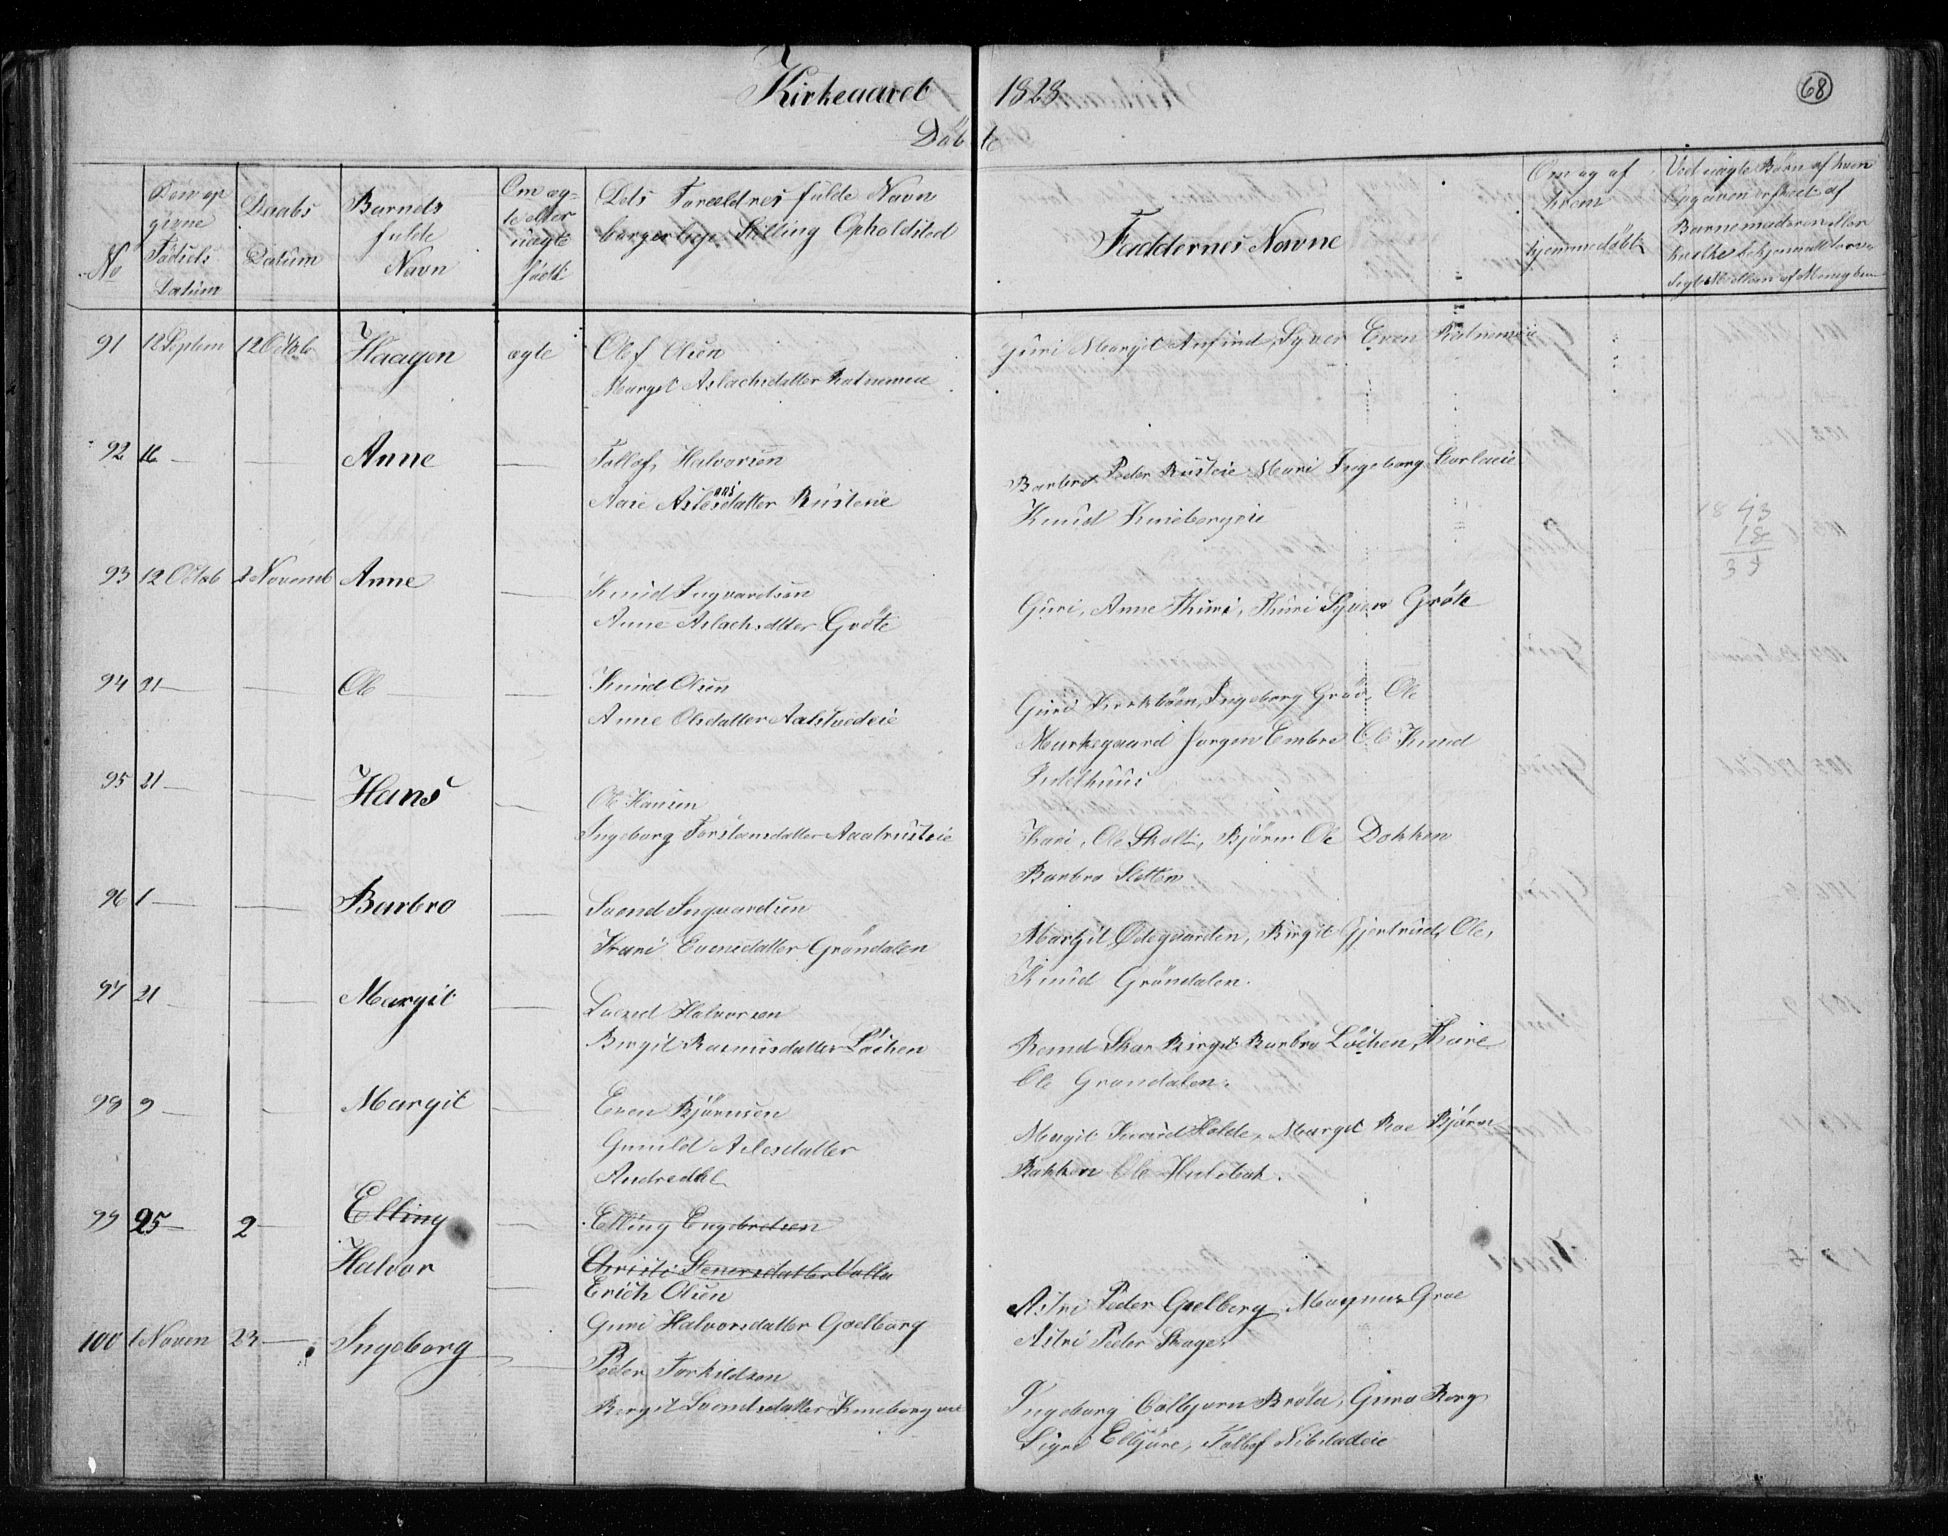 Kirkeaaret 1828
68
Döbte
No
Den op
givne
Födsels
Datum
Daabs
Datum
Barnets
fulde
Navn
Om æg-
te eller
uægte
födt
Dets Forældres fulde Navn
borgerlige Stilling Opholdsted
Faddernes Navne
Om og af
hvem
hjemmedöbt
Ved uægte Börn af hvem
Opgaven
Barnemoderen eller
91 12 Septem 12 Octob Haagen ægte Olef Olsen
Margit Aslachsdatter Ratnemeie
Guri Margit Anfind, Syver Even Ratnemeie
92 16 — — Anne — Tollof Halvorsen
Aase Aslesdatter Rusteeie
Barbro Peder Rusteie Mari Ingeborg
Knud Kneborgeie
1843
18
93 12 Octob 2 Novemb Anne — Knud Ingvardsen
Anne Aslachsdtter Gröte
Guri, Anne Thuri, Thuri Syver Gröte
94 21 — — Ole — Knud Olsen
Anne Olsdatter
Guri Kirkböen, Ingeborg Gröv, Ole
Markegaard Jorgen Embre Ole Knud
95 21 — — Hans — Ole Hansen
Ingeborg Torstensdatter
Kari, Ole Skolt, Björn Ole Dokken
Barbro Sletten
96 1 — — Barbro — Svend Ingvardsen
Kari Evensdatter Gröndalen
Margit Ødegaarden, Birgit Gjertrud, Ole,
Knud Gröndalen.
97 21 — Margit — Svend Halvorsen
Birgit Rasmusdatter Löken
Skar Birgit Barbro Löken, Thure
Ole Grøndalen.
98 9 — — Margit — Even Björnsen
Gunild Aslesdatter
Andredal
Margit Knud Holde, Margit Roe Björn
Bakken Ole Hulebak.
99 25 — 2 — Elling — Elling Engebretsen
Christi Stenersdatter Valla
Halvor — Erich Olsen
Guri Halvorsdatter Goelberg
Astri Peder Goelberg Magnus Groe
Astri Peder Skage
100 1 Novem 23 — Ingeborg — Peder Torkildsen
Birgit Svendsdatter Kneborgeie
Ingeborg Colbjorn Bröta, Guro Berg
Sigri Elbjöre, Tollof Nibstadeie